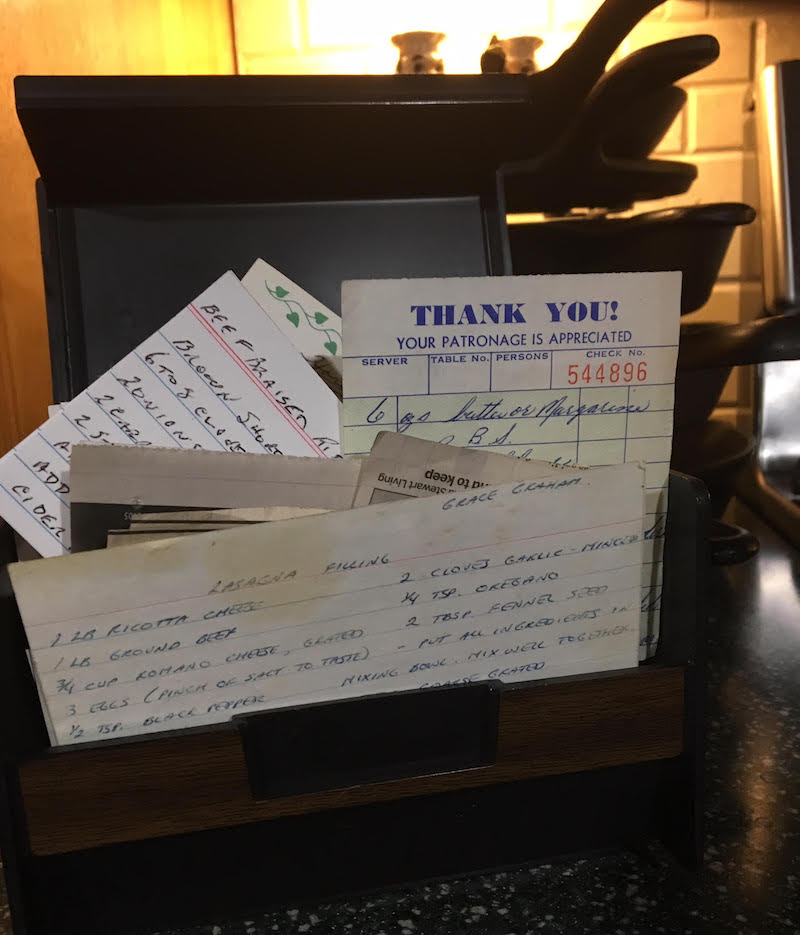 BEEF BRAISED
BROWN SHORT
6 TO 8 CLOVES
2 ONIONS
2 CARR
2 S
ADD
CIDER
THANK YOU!
YOUR PATRONAGE IS APPRECIATED
SERVER TABLE No. PERSONS CHECK No.
544896
6 ozs butter or Margarine
BS.
Stewart Living
nd to keep
GRACE GRAHAM
LASAGNA FILLING
1 LB RICOTTA CHEESE
1 LB GROUND BEEF
3/4 CUP ROMANO CHEESE, GRATED
3 EGGS (PINCH OF SALT TO TASTE)
1/2 TSP. BLACK PEPPER
2 CLOVES GARLIC - MINCED
1/4 TSP. OREGANO
2 TBSP. FENNEL SEED
- PUT ALL INGREDIENTS IN
MIXING BOWL. MIX WELL TOGETHER.
COARSE GRATED